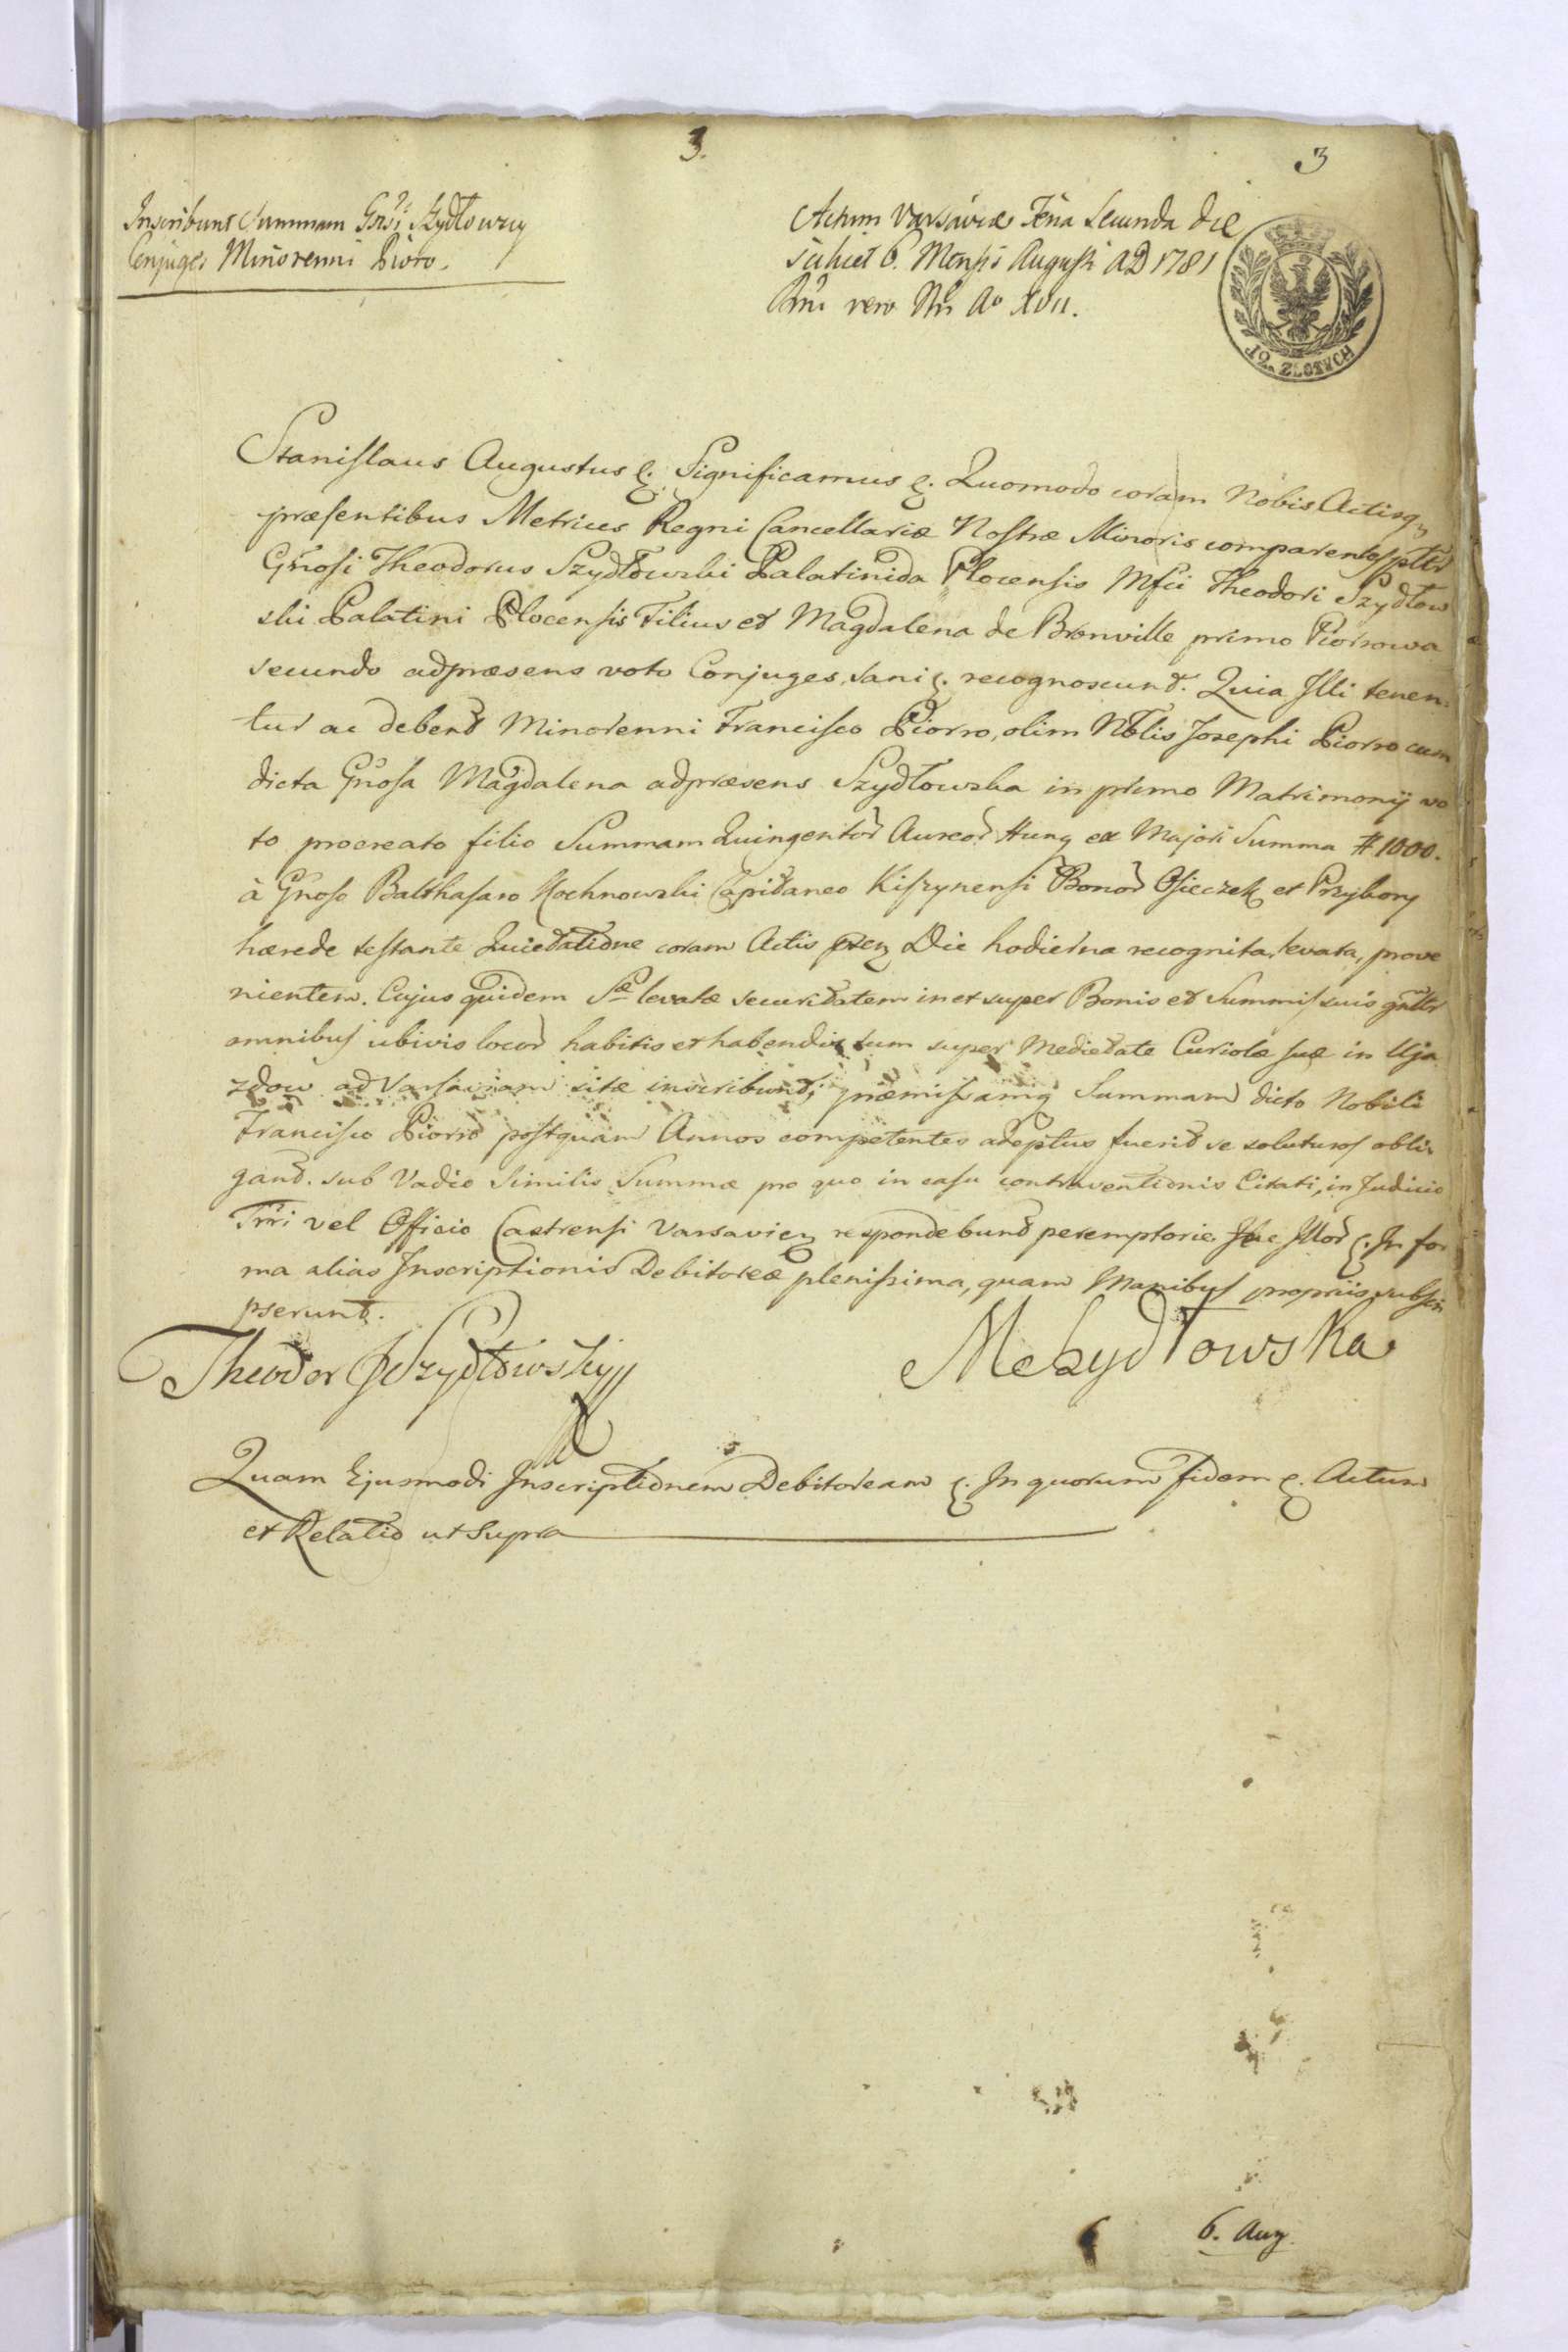 3.
3
Inscribunt Summam Gnsi Szydłowscy
Conjuges Minorenni Pioro.
Actum Varsaviæ Feria Secunda die
scilicet 6. Mensis Augusti AD 1781
Rni vero Nri Ao XVII.
12 ZŁOTYCH
Stanislaus Augustus &. Significamus &. Quomodo coram Nobis Actisq
præsentibus Metrices Regni Cancellariæ Nostræ Minoris comparentes pltr
Gnosi Theodorus Szydłowski Palatinida Plocensis Mfci Theodori Szydłow
ski Palatini Plocensis Filius et Magdalena de Bronville primo Piorrowa
secundo adpræsens voto Conjuges, sani &. recognoscunt. Quia Illi tenen
tur ac debent Minorenni Francisco Piorro, olim Nblis Josephi Piorro cum
dicta Gnosa Magdalena adpræsens Szydłowska in primo Matrimonij vo
to procreato filio Summam Quingentor Aureor Hung ex Majori Summa # 1000.
à Gnoso Balthasaro Kochnowski Capitaneo Kiszynensi Bonor Osieczek et Przybory
hærede testante Quietatione coram Actis præsen Die hodierna recognita, levata, prove
nientem. Cujus quidem Sæ levatæ securitatem in et super Bonis et Summis suis gnltr
omnibus ubivis locor habitis et habendis tum super Medietate Curiolæ suæ in Uja
zdow ad Varsaviam sitæ inscribunt; præmissamq Summam dicto Nobili
Francisco Piorro postquam Annos competentes adeptus fuerit se soluturos obli
gant. sub Vadio Similis Summæ pro quo in casu contraventionis Citati, in Judicio
Trri vel Officio Castrensi Varsavien respondebunt peremptorie. Illor &. In for
ma alias Inscriptionis Debitoreæ plenissima, quam Manibus propriis subscri
pserunt.
Theodor Szydłowski
MSzydłowska
Quam Ejusmodi Inscriptionem Debitoream &. In quorum fidem &. Actum
et Relatio ut Supra
6. Aug.